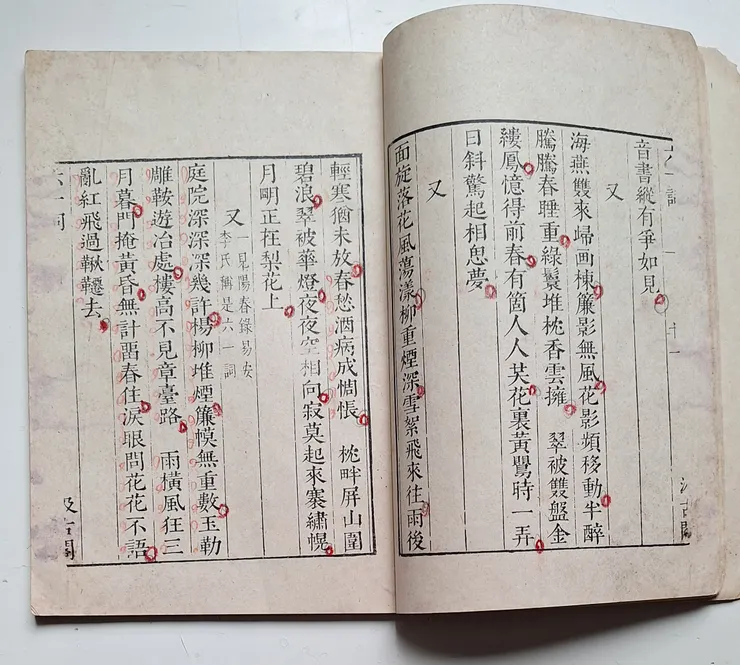 音書縱有爭如見
又
海燕雙來歸画棟簾影無風花影頻移動半醉
騰騰春睡重綠鬟堆枕香雲擁 翠被雙盤金
縷鳳憶得前春有箇人人共花裏黃鸎時一弄
日斜驚起相思夢
又
面旋落花風蕩漾柳重煙深雪絮飛來往雨後
輕寒猶未放春愁酒病成惆悵 枕畔屏山圍
碧浪翠被華燈夜夜空相向寂莫起來搴繡幌
月明正在梨花上
又
一見陽春錄易安
李氏稱是六一詞
庭院深深深幾許楊柳堆煙簾幙無重數玉勒
雕鞍遊冶處樓高不見章臺路 雨橫風狂三
月暮門掩黃昏無計畱春住淚眼問花花不語
亂紅飛過鞦韆去